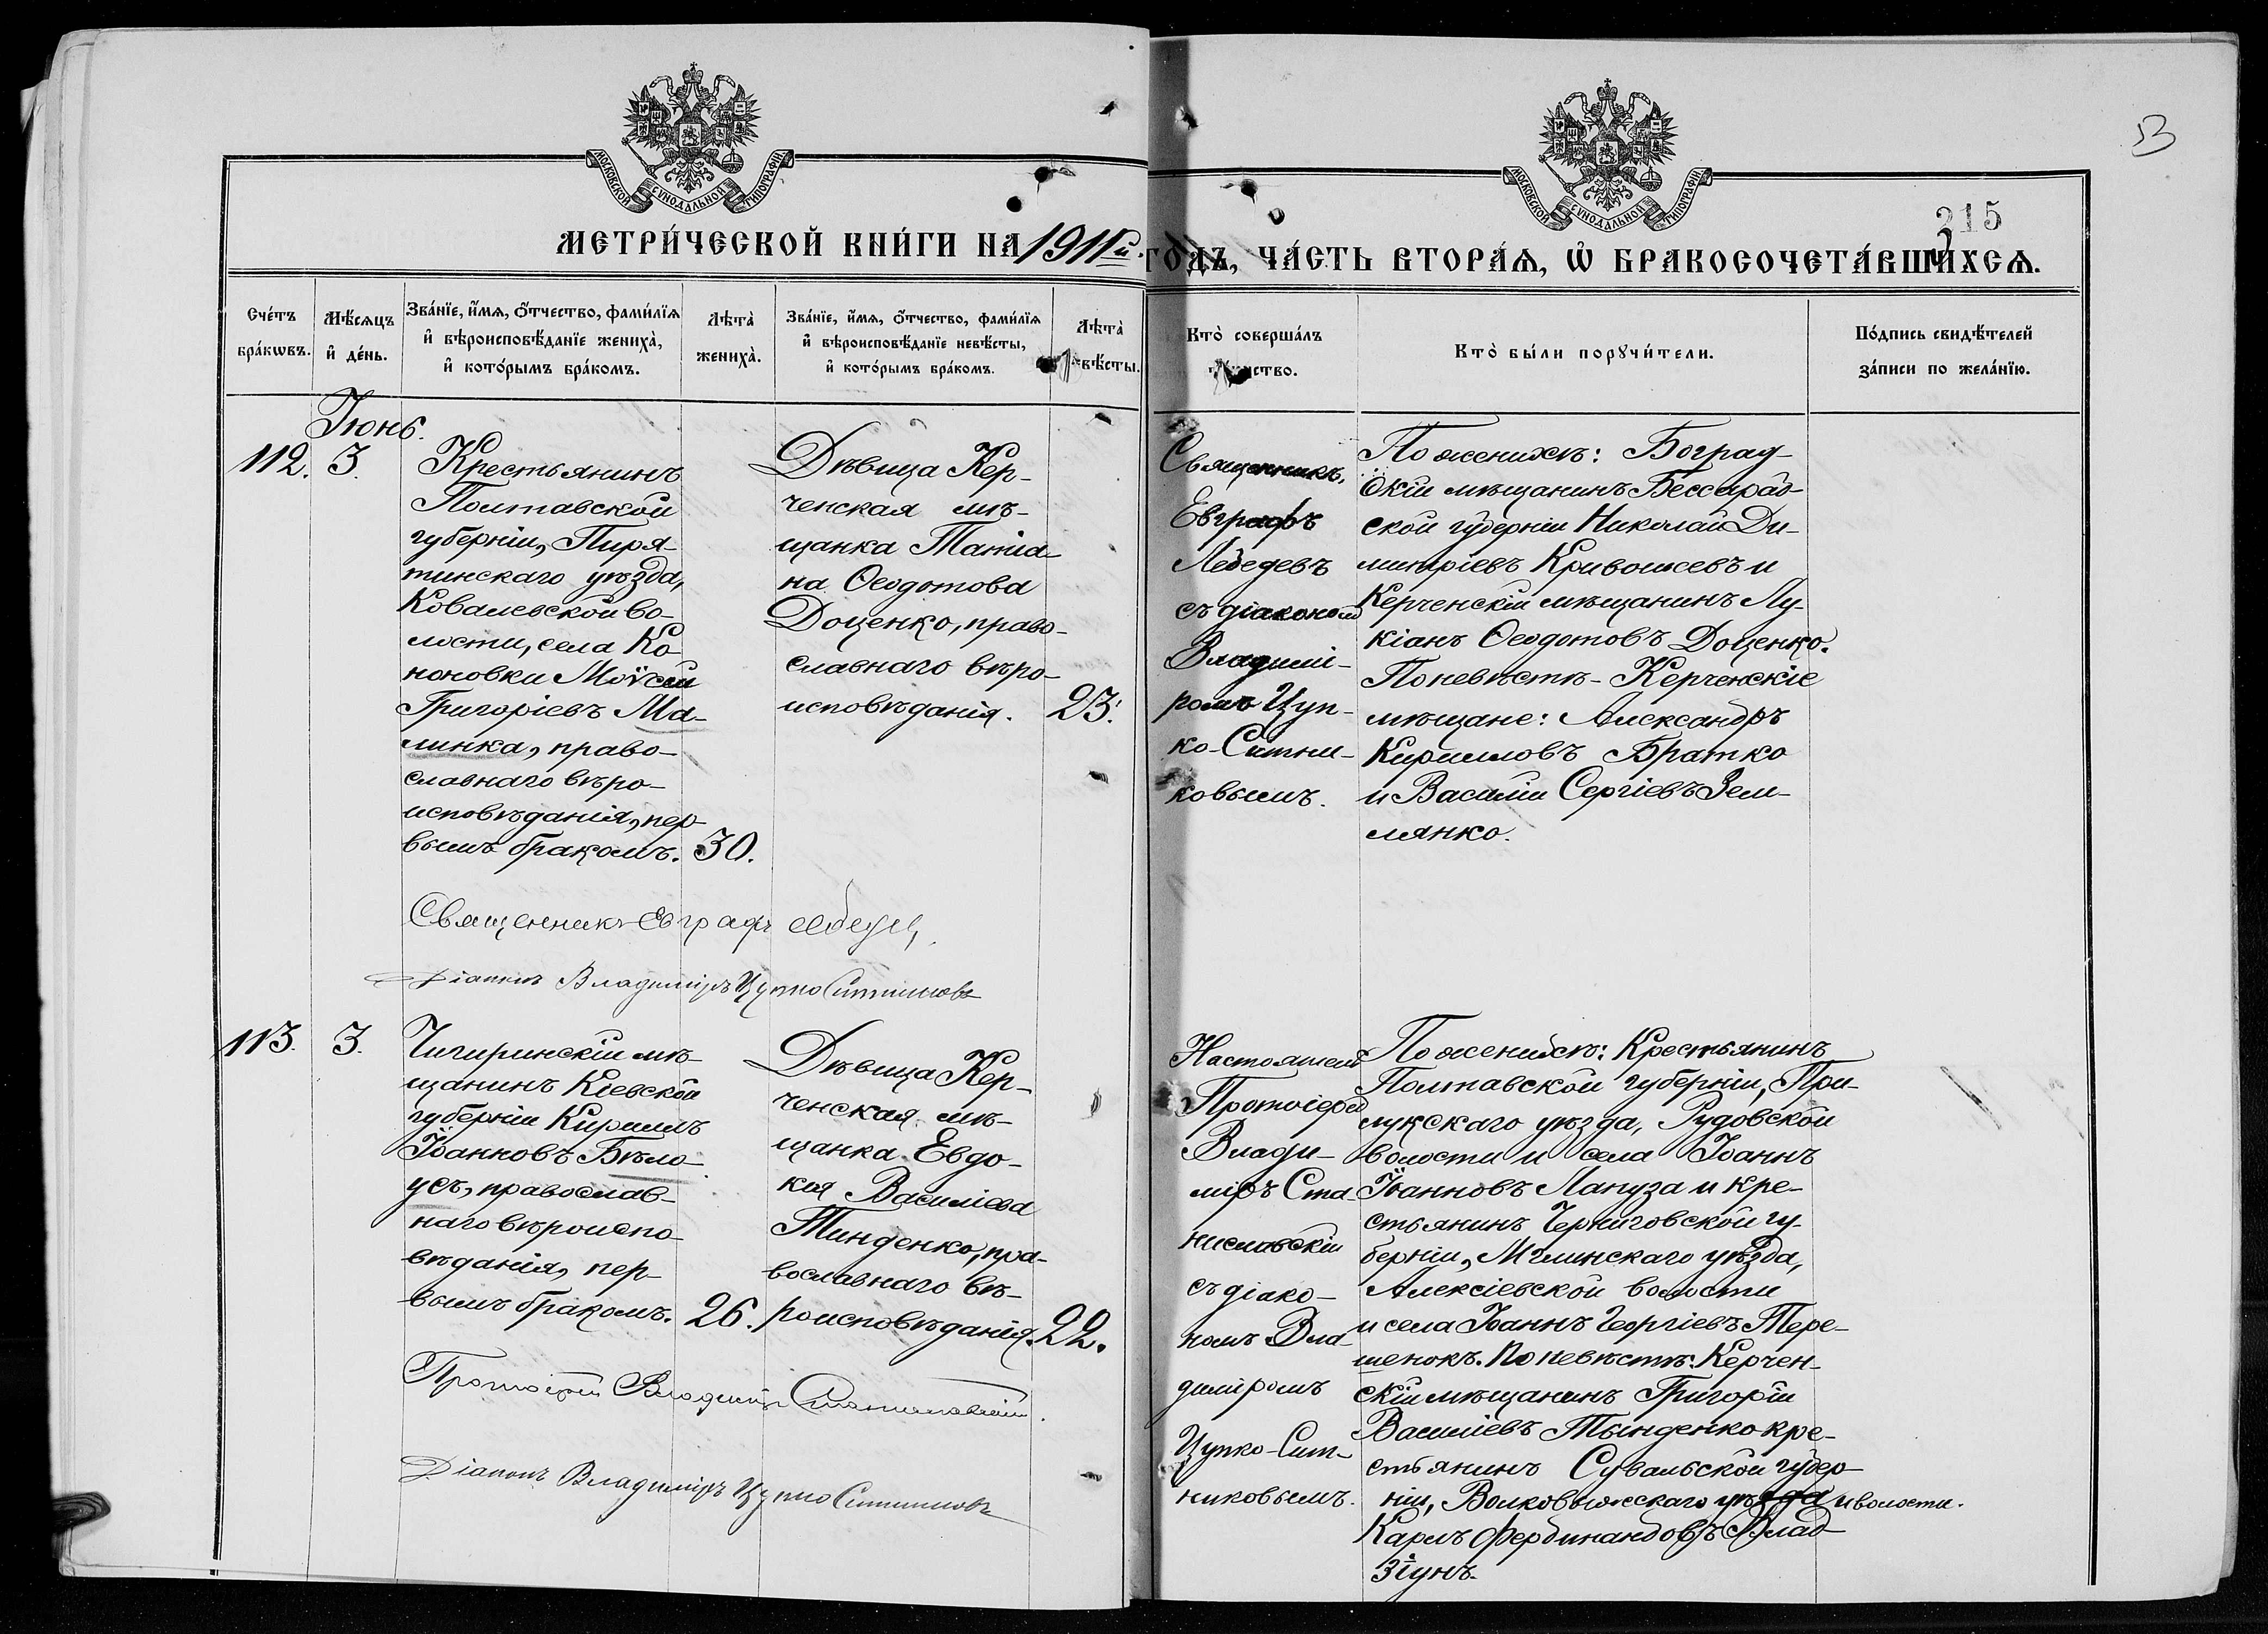 53
215
МОСКОВСКОЙ СѴНОДАЛЬНОЙ ТИПОГРАФІИ
МОСКОВСКОЙ СѴНОДАЛЬНОЙ ТИПОГРАФІИ
МЕТРИ́ЧЕСКОЙ КНИ́ГИ НА 1911й. ГОДЪ, ЧА́СТЬ ВТОРА́Ѧ, Ѡ҆ БРАКОСОЧЕТА́ВШИХСѦ.
Сче́тъ
бра́кѡвъ.
Мѣ́сѧцъ
и҆ де́нь.
Зва́нїе, и҆́мѧ, ѻ҆́тчество, фами́лїѧ
и҆ вѣроисповѣ́данїе жениха̀,
и҆ кото́рымъ бра́комъ.
Лѣта̀
жениха̀.
Зва́нїе, и҆́мѧ, ѻ҆́тчество, фами́лїѧ
и҆ вѣроисповѣ́данїе невѣ́сты,
и҆ кото́рымъ бра́комъ.
Лѣта̀
невѣ́сты.
Кто̀ соверша́лъ
таинство.
Кто̀ бы́ли порꙋчи́тели.
По́дпись свидѣ́телей
за́писи по жела́нїю.
Іюнь.
112.
3.
Крестьянинъ
Полтавской
губерніи, Пиря-
тинскаго уѣзда,
Ковалевской во-
лости, села Ко-
ноновки Моѵсей
Григоріевъ Ма-
линка, право-
славнаго вѣро-
исповѣданія, пер-
вымъ бракомъ.
30.
Дѣвица Кер-
ченская мѣ-
щанка Татіа-
на Ѳеодотова
Доценко, право-
славнаго вѣро-
исповѣданія.
23.
Священникъ
Евграфъ
Лебедевъ
съ діакономъ
Владимі-
ромъ Цуп-
ко-Ситни-
ковымъ.
По женихѣ: Боград-
скій мѣщанинъ Бессараб-
ской губерніи Николай Ди-
митріевъ Кривошеевъ и
Керченскій мѣщанинъ Лу-
кіанъ Ѳеодотовъ Доценко.
По невѣстѣ - Керченскіе
мѣщане: Александръ
Кирилловъ Братко
и Василій Сергіевъ Зем-
лянко.
Священникъ Евграфъ Лебедевъ
Діаконъ Владиміръ Цупко Ситниковъ
113.
3.
Чигиринскій мѣ-
щанинъ Кіевской
губерніи Кириллъ
Іоанновъ Бѣло-
усъ, православ-
наго вѣроиспо-
вѣданія, пер-
вымъ бракомъ.
26.
Дѣвица Кер-
ченская мѣ-
щанка Евдо-
кія Василіева
Тинденко, пра-
вославнаго вѣ-
роисповѣданія.
22.
Настоятель
Протоіерей
Влади-
міръ Ста-
ниславскій
съ діако-
номъ Вла-
диміромъ
Цупко-Сит-
никовымъ.
По женихѣ: Крестьянинъ
Полтавской губерніи, При-
лукскаго уѣзда, Рудовской
волости и села Іоаннъ
Іоанновъ Лапуза и кре-
стьянинъ Черниговской гу-
берніи, Мглинскаго уѣзда,
Алексіевской волости
и села Іоаннъ Георгіевъ Тере-
шенокъ. По невѣстѣ: Керчен-
скій мѣщанинъ Григорій
Василіевъ Тынденко кре-
стьянинъ Сувальской губер-
ніи, Волковыжскаго уѣзда и волости.
Карлъ Фердинандовъ Влад-
зіунъ.
Протоіерей Владиміръ Станиславскій.
Діаконъ Владиміръ Цупко Ситниковъ